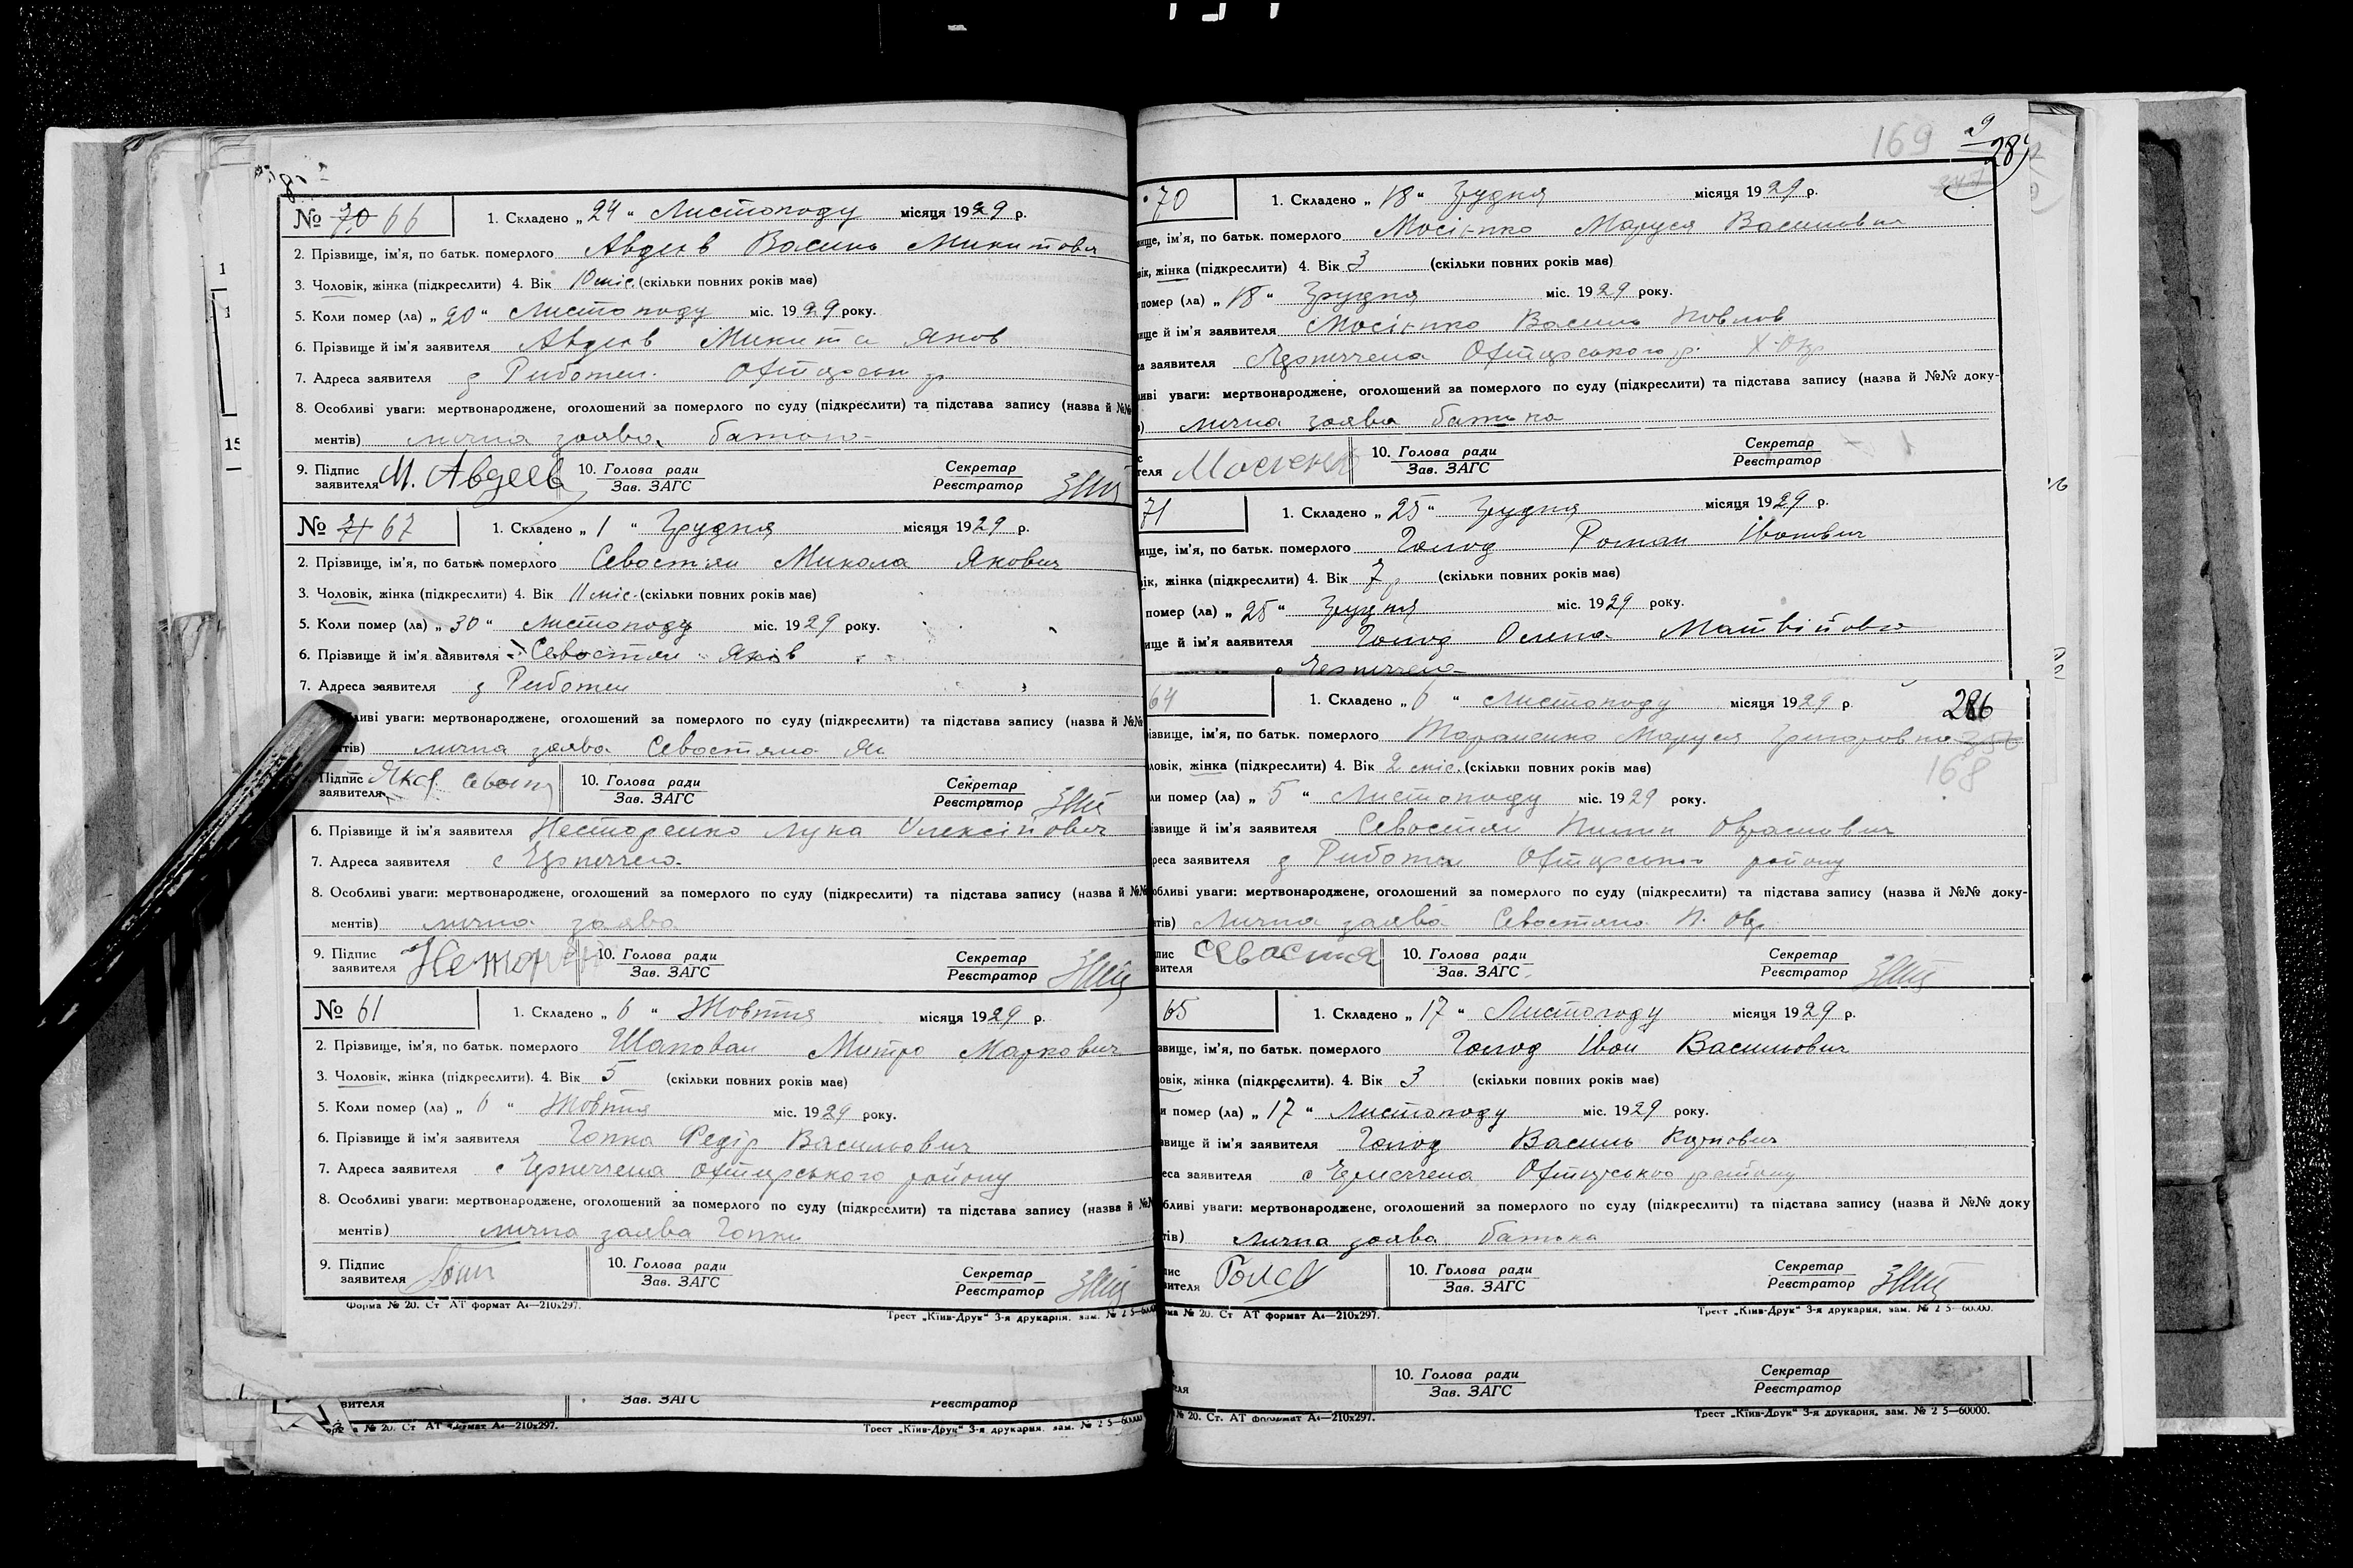 № 70 66 1. Складено „ 24 “ Листопаду місяця 1929 р.
2. Прізвище, ім'я, по батьк. померлого Авдеєв Василь Микитович
3. Чоловік, жінка (підкреслити) 4. Вік 10 міс. (скільки повних років має)
5. Коли помер (ла) „ 20 “ Листопаду міс. 1929 року.
6. Прізвище й ім'я заявителя Авдеєв Микита Яков
7. Адреса заявителя
8. Особливі уваги: мертвонароджене, оголошений за померлого по суду (підкреслити) та підстава запису (назва й №№
ментів) лична заява батька
9. Підпис заявителя М. Авдеев 10. Голова ради Зав. ЗАГС Секретар Реєстратор
№ 71 67 1. Складено „ 1 “ Грудня місяця 1929 р.
2. Прізвище, ім'я, по батьк. померлого Севастян Микола Якович
3. Чоловік, жінка (підкреслити) 4. Вік 11 міс. (скільки повних років має)
5. Коли помер (ла) „ 30 “ Листопаду міс. 1929 року.
6. Прізвище й ім'я заявителя Севастян Яков
7. Адреса заявителя
ливі уваги: мертвонароджене, оголошений за померлого по суду (підкреслити) та підстава запису (назва й №№
нтів) лична заява Севастяна Як
Підпис заявителя 10. Голова ради Зав. ЗАГС Секретар Реєстратор
6. Прізвище й ім'я заявителя Несторенко Лука Олексійович
7. Адреса заявителя с
8. Особливі уваги: мертвонароджене, оголошений за померлого по суду (підкреслити) та підстава запису (назва й №№
ментів) лична заява
9. Підпис заявителя 10. Голова ради Зав. ЗАГС Секретар Реєстратор
№ 61 1. Складено „ 6 “ Жовтня місяця 1929 р.
2. Прізвище, ім'я, по батьк. померлого Шаповал Митро Маркович
3. Чоловік, жінка (підкреслити). 4. Вік 5 (скільки повних років має)
5. Коли помер (ла) „ 6 “ Жовтня міс. 1929 року.
6. Прізвище й ім'я заявителя Гопка Федір Васильович
7. Адреса заявителя с району
8. Особливі уваги: мертвонароджене, оголошений за померлого по суду (підкреслити) та підстава запису (назва й №№
ментів) лична заява Гопки
9. Підпис заявителя 10. Голова ради Зав. ЗАГС Секретар Реєстратор
Форма № 20. Ст АТ формат А4—210х297. Трест „Київ-Друк“ 3-я друкарня, зам. № 2 5—60000
вителя Зав. ЗАГС Реєстратор
№ 20. Ст АТ формат А4—210х297. Трест „Київ-Друк“ 3-я друкарня, зам. № 2 5—60000
169
70 1. Складено „ 18 “ Грудня місяця 1929 р.
ище, ім'я, по батьк. померлого Мосієнко Маруся Васильовна
вік, жінка (підкреслити) 4. Вік 3 (скільки повних років має)
помер (ла) „ 18 “ Грудня міс. 1929 року.
ище й ім'я заявителя Мосієнко Василь Павлов
заявителя
ливі уваги: мертвонароджене, оголошений за померлого по суду (підкреслити) та підстава запису (назва й №№ доку-
лична заява батька
теля 10. Голова ради Зав. ЗАГС Секретар Реєстратор
71 1. Складено „ 25 “ Грудня місяця 1929 р.
ище, ім'я, по батьк. померлого Голод Роман Іванович
ік, жінка (підкреслити) 4. Вік 7 р (скільки повних років має)
помер (ла) „ 25 “ Грудня міс. 1929 року.
ище й ім'я заявителя Голод Олена Матвійовна
64 1. Складено „ 6 “ Листопаду місяця 1929 р. 286
ізвище, ім'я, по батьк. померлого Тараненко Маруся Григоровна
ловік, жінка (підкреслити) 4. Вік 2 міс. (скільки повних років має) 168
ли помер (ла) „ 5 “ Листопаду міс. 1929 року.
ізвище й ім'я заявителя Севастян
реса заявителя району
обливі уваги: мертвонароджене, оголошений за померлого по суду (підкреслити) та підстава запису (назва й №№ доку-
нтів) Лична заява Севастяна
пис вителя Севастя 10. Голова ради Зав. ЗАГС Секретар Реєстратор
65 1. Складено „ 17 “ Листопаду місяця 1929 р.
звище, ім'я, по батьк. померлого Голод Іван Васильович
овік, жінка (підкреслити). 4. Вік 3 (скільки повних років має)
и помер (ла) „ 17 “ Листопаду міс. 1929 року.
звище й ім'я заявителя Голод Василь Карпович
еса заявителя с району
бливі уваги: мертвонароджене, оголошений за померлого по суду (підкреслити) та підстава запису (назва й №№ доку
тів) Лична заява батька
пис вителя Голод 10. Голова ради Зав. ЗАГС Секретар Реєстратор
ма № 20. Ст АТ формат А4—210х297. Трест „Київ-Друк“ 3-я друкарня, зам. № 2 5—60000.
10. Голова ради Зав. ЗАГС Секретар Реєстратор
№ 20. Ст. АТ формат А4—210х297. Трест „Київ-Друк“ 3-я друкарня, зам. № 2 5—60000.